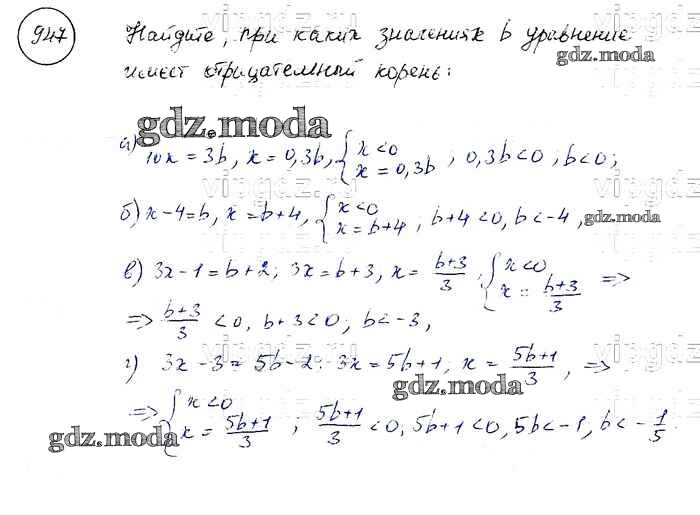 947 Найдите, при каких значениях b уравнение
gdz.moda
имеет отрицательный корень:
gdz.moda
а) 10x = 3b, x = 0,3b, { x<0 x = 0,3b ; 0,3b<0, b<0;
vipgdz.ru
б) x-4=b, x = b+4, { x<0 x = b+4 ; b+4<0, b<-4, gdz.moda
в) 3x-1=b+2; 3x=b+3, x = b+3/3 ; { x<0 x = b+3/3 =>
=> b+3/3 <0, b+3<0; b<-3,
г) 3x-3=5b-2; 3x=5b+1; x = 5b+1/3, =>
gdz.moda
=> { x<0 x = 5b+1/3 ; 5b+1/3 <0, 5b+1<0, 5b<-1, b<-1/5.
gdz.moda